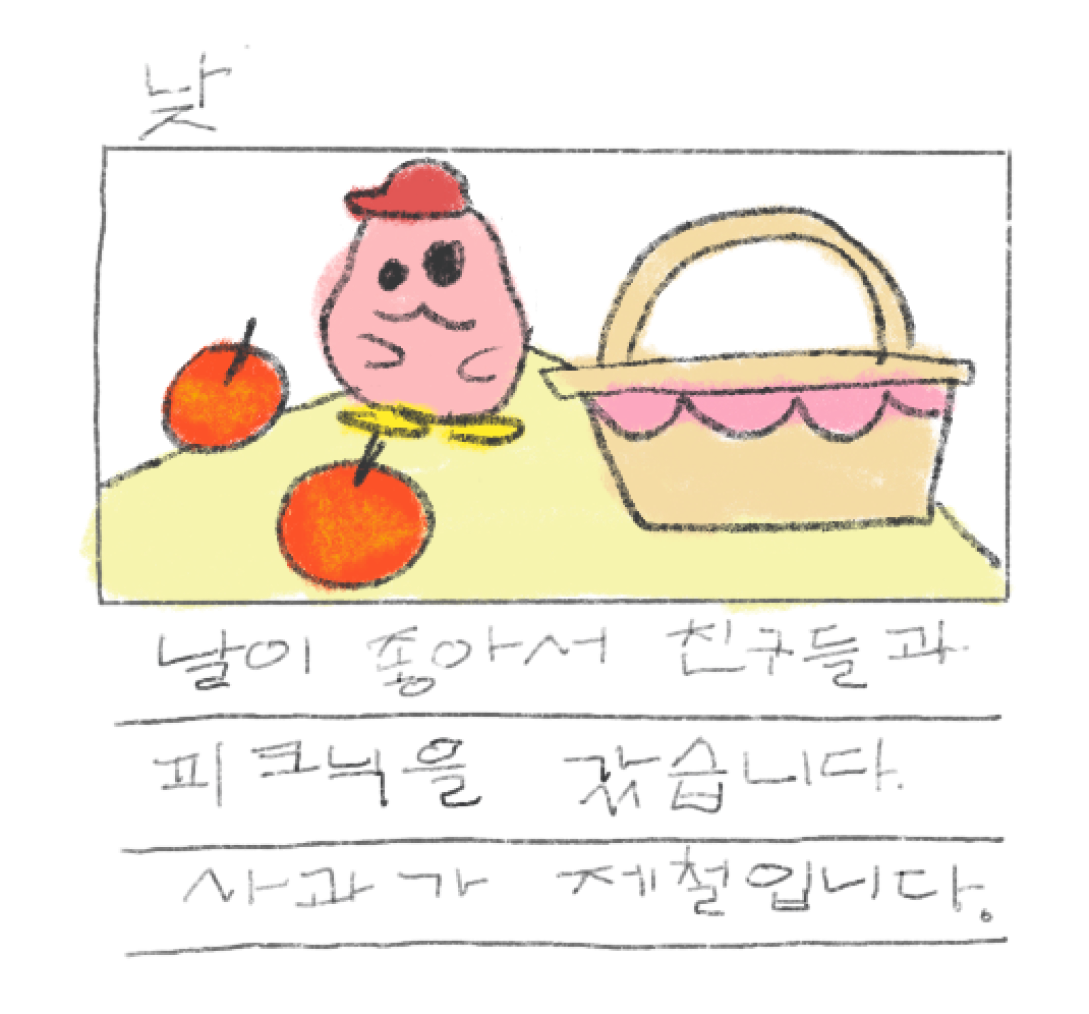 낮
날이 좋아서 친구들과
피크닉을 갔습니다.
사과가 제철입니다.